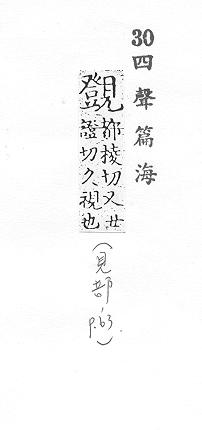 30四聲篇海
覴都棱切又丑
證切久視也
(見部, p.63.)